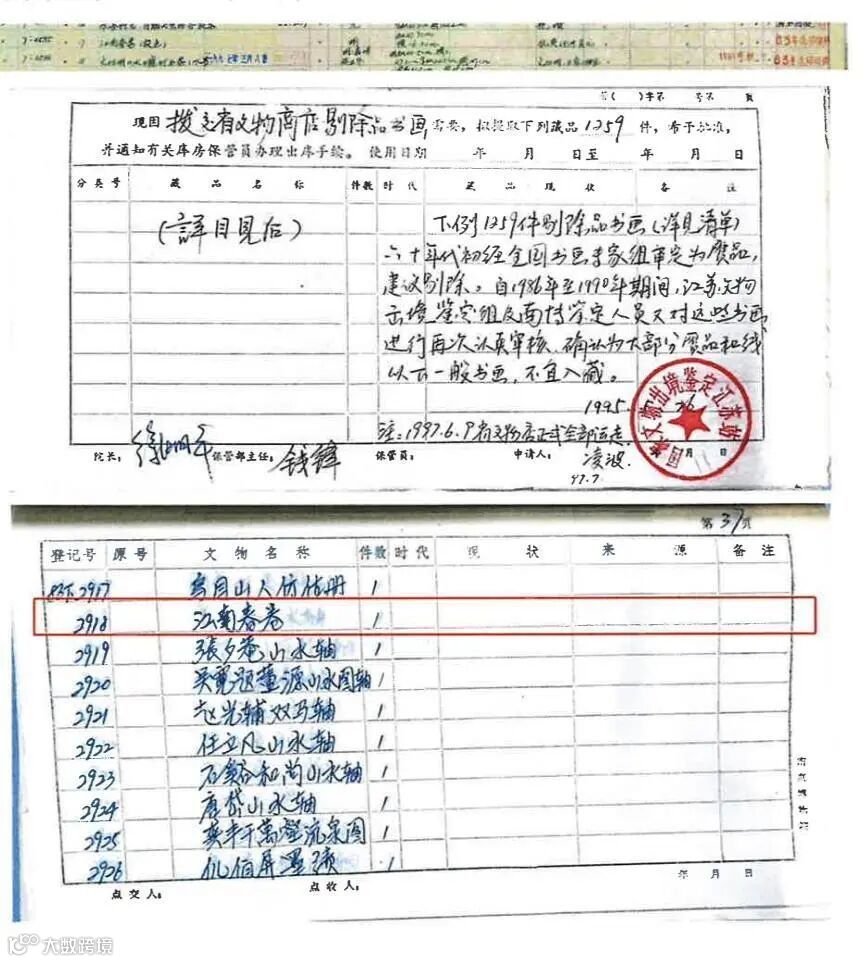 第( )字第 号第 页
现因 拨交省文物商店剔除品书画 需要，拟提取下列藏品 1259 件，希予批准，
并通知有关库房保管员办理出库手续。 使用日期 年 月 日至 年 月 日
分类号 藏品名称 件数 时代 藏品现状 备注
(詳目見后)
下列1259件剔除品书画(详见清单)
六十年代初经全国书画专家组审定为赝品，
建议剔除。自1986年至1990年期间，江苏文物
出境鉴定组及南博鉴定人员又对这些书画
进行再次认真审核，确认为大部分赝品和线
以下一般书画，不宜入藏。
1995
注：1997.6.9省文物店正式全部运走
院长： 徐湖平 保管部主任： 钱锋 保管员： 申请人： 凌波 月 日
97.7
国家文物出境鉴定江苏站
第37页
登记号 原号 文物名称 件数 时代 现状 来源 备注
2917 1
2918 江南春卷 1
2919 張夕菴山水轴 1
2920 吴寬题董源山水图轴 1
2921 赵光辅双马轴 1
2922 任立凡山水轴 1
2923 石谿和尚山水轴 1
2924 唐岱山水轴 1
2925 流泉图 1
2926 1
年 月 日
点交人： 点收人：
大数跨境